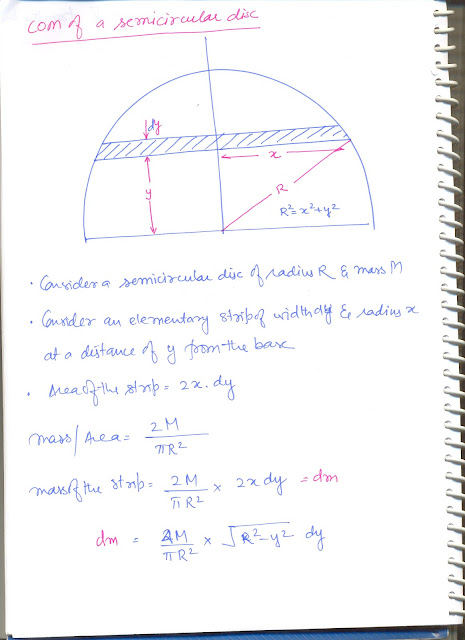 COM of a semicircular disc
dy
x
y
R
R² = x²+y²
· Consider a semicircular disc of radius R & mass M
· Consider an elementary strip of width dy & radius x
at a distance of y from the base
· Area of the strip = 2x.dy
mass/Area = 2M/πR²
mass of the strip = 2M/πR² × 2x dy = dm
dm = 4M/πR² × √R²-y² dy